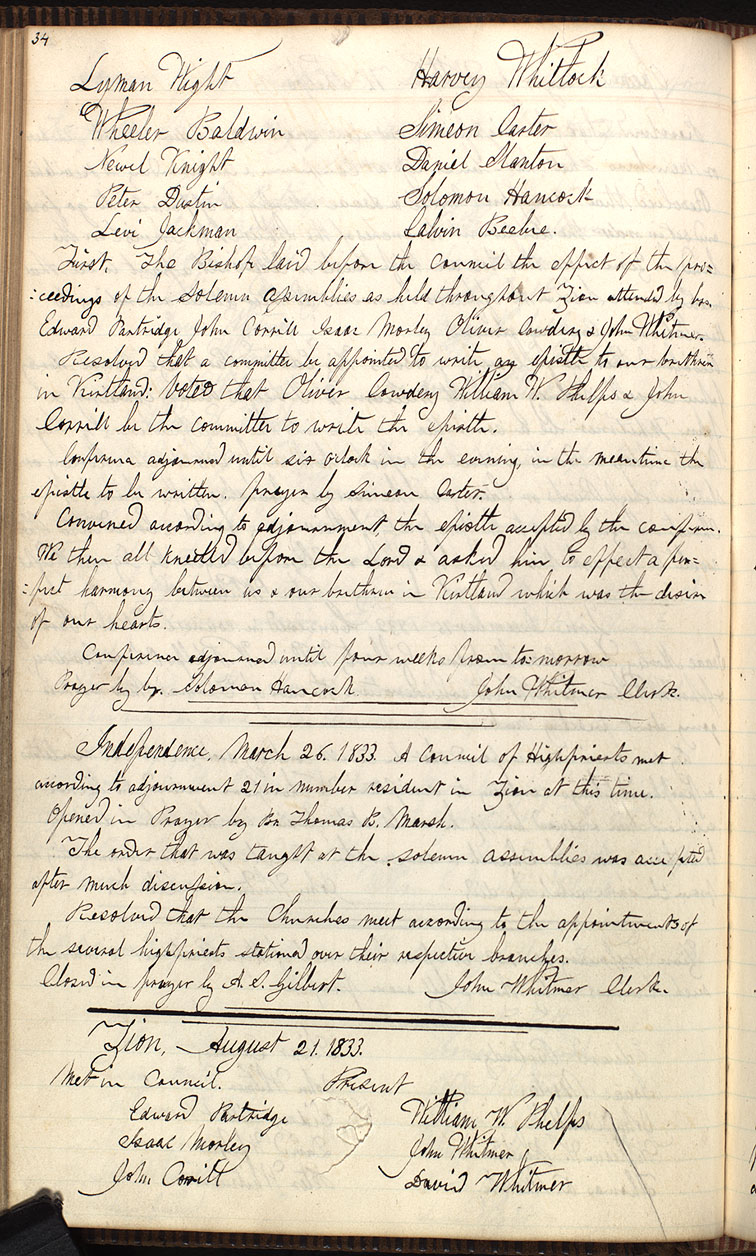 34
Lyman Wight Harvey Whitlock
Wheeler Baldwin Simeon Carter
Newel Knight Daniel Stanton
Peter Dustin Solomon Hancock
Levi Jackman Calvin Beebe.
First. The Bishop laid before the council the effect of the pro=
=ceedings of the solemn assemblies as held throughout Zion attended by bro.
Edward Partridge John Corrill Isaac Morley Oliver Cowdery & John Whitmer.
Resolved that a committee be appointed to write an epistle to our brethren
in Kirtland: Voted that Oliver Cowdery William W. Phelps & John
Corrill be the committee to write the epistle.
Conference adjourned until six oclock in the evening, in the meantime the
epistle to be written. prayer by Simeon Carter.
Convened according to adjournment, the epistle accepted by the conferen.
We then all kneeled before the Lord & asked him to effect a per=
=fect harmony between us & our brethren in Kirtland which was the desire
of our hearts.
Conference adjourned until four weeks from to-morrow
Prayer by br. Solomon Hancock John Whitmer Clerk.
Independence, March 26. 1833. A Council of Highpriests met
according to adjournment 21 in number resident in Zion at this time.
Opened in Prayer by Br Thomas B. Marsh.
The order that was taught at the solemn assemblies was accepted
after much discussion.
Resolved that the Churches meet according to the appointments of
the several highpriests stationed over their respective branches.
Closed in prayer by A. S. Gilbert. John Whitmer Clerk.
Zion, August 21. 1833.
Met in Council. Present
Edward Partridge William W. Phelps
Isaac Morley John Whitmer
John Corrill David Whitmer